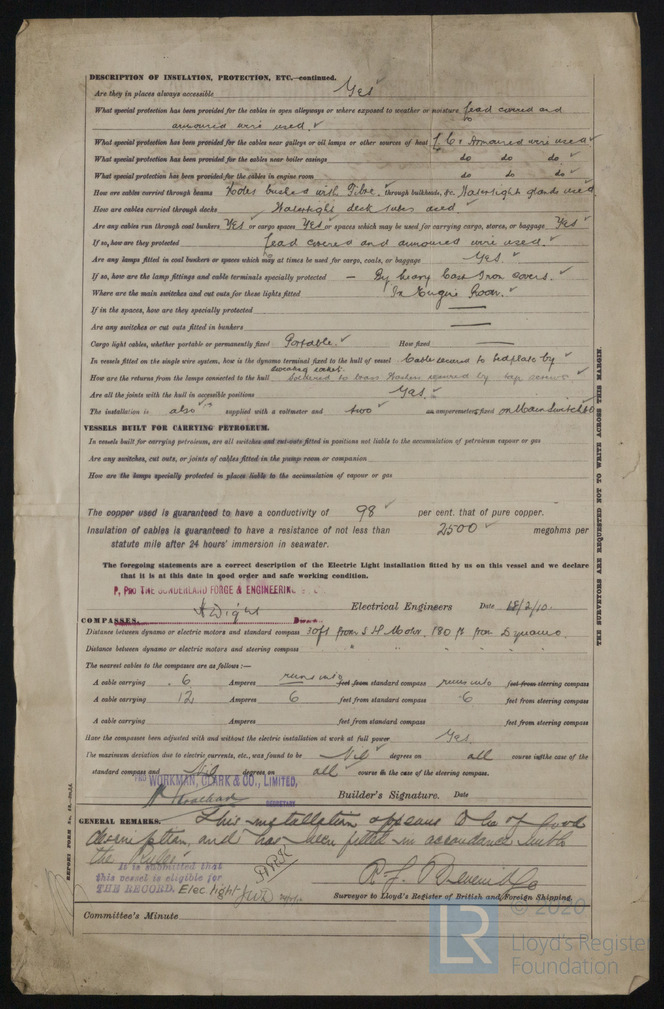 DESCRIPTION OF INSULATION, PROTECTION, ETC.—continued.
Are they in places always accessible Yes
What special protection has been provided for the cables in open alleyways or where exposed to weather or moisture Lead covered and
armoured wire used.
What special protection has been provided for the cables near galleys or oil lamps or other sources of heat L.C. & Armoured wire used
What special protection has been provided for the cables near boiler casings do do do.
What special protection has been provided for the cables in engine room do do do.
How are cables carried through beams Holes bushed with Fibre. through bulkheads, &c. Watertight glands used
How are cables carried through decks Watertight deck tubes used.
Are any cables run through coal bunkers Yes or cargo spaces Yes or spaces which may be used for carrying cargo, stores, or baggage Yes
If so, how are they protected Lead covered and armoured wire used.
Are any lamps fitted in coal bunkers or spaces which may at times be used for cargo, coals, or baggage Yes.
If so, how are the lamp fittings and cable terminals specially protected — By heavy Cast Iron covers.
Where are the main switches and cut outs for these lights fitted In Engine Room.
If in the spaces, how are they specially protected ——
Are any switches or cut outs fitted in bunkers ——
Cargo light cables, whether portable or permanently fixed Portable. How fixed ——
In vessels fitted on the single wire system, how is the dynamo terminal fixed to the hull of vessel Cable secured to bedplate by
sweating socket.
How are the returns from the lamps connected to the hull Soldered to brass washer secured by tap screws
Are all the joints with the hull in accessible positions Yes.
The installation is also supplied with a voltmeter and two an amperemeters, fixed on Main Switchbd
VESSELS BUILT FOR CARRYING PETROLEUM.
In vessels built for carrying petroleum, are all switches and cut-outs fitted in positions not liable to the accumulation of petroleum vapour or gas
Are any switches, cut outs, or joints of cables fitted in the pump room or companion
How are the lamps specially protected in places liable to the accumulation of vapour or gas
The copper used is guaranteed to have a conductivity of 98 per cent. that of pure copper.
Insulation of cables is guaranteed to have a resistance of not less than 2500 megohms per
statute mile after 24 hours' immersion in seawater.
The foregoing statements are a correct description of the Electric Light installation fitted by us on this vessel and we declare
that it is at this date in good order and safe working condition.
P. PRO THE SUNDERLAND FORGE & ENGINEERING
Wight Electrical Engineers Date 18/2/10.
COMPASSES.
Distance between dynamo or electric motors and standard compass 30ft from S H Motor. 180 ft from Dynamo.
Distance between dynamo or electric motors and steering compass " " "
The nearest cables to the compasses are as follows:—
A cable carrying 6 Amperes runs into feet from standard compass runs into feet from steering compass
A cable carrying 12 Amperes 6 feet from standard compass 6 feet from steering compass
A cable carrying Amperes feet from standard compass feet from steering compass
Have the compasses been adjusted with and without the electric installation at work at full power Yes.
The maximum deviation due to electric currents, etc., was found to be Nil degrees on all course in the case of the
standard compass and Nil degrees on all course in the case of the steering compass.
PRO WORKMAN, CLARK & CO., LIMITED,
SECRETARY
Builder's Signature. Date
GENERAL REMARKS. This installation appears to be of good
description, and has been fitted in accordance with
the Rules.
It is submitted that
this vessel is eligible for
THE RECORD. Elec light
Surveyor to Lloyd's Register of British and Foreign Shipping.
Committee's Minute
THE SURVEYORS ARE REQUESTED NOT TO WRITE ACROSS THIS MARGIN.
LR © 2020
Lloyd's Register
Foundation